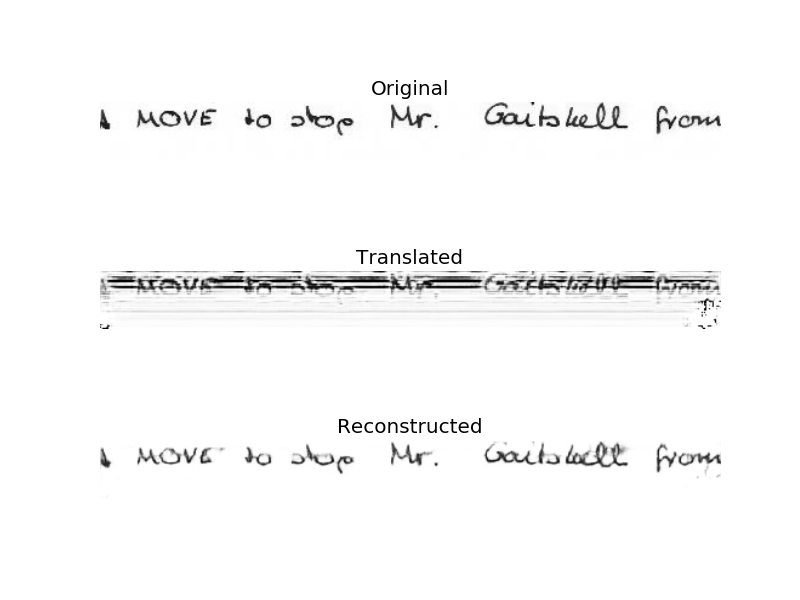 Original
A MOVE to stop Mr. Gaitskell from
Translated
MOVE to stop Mr. Gaitskell from
Reconstructed
MOVE to stop Mr. Gaitskell from